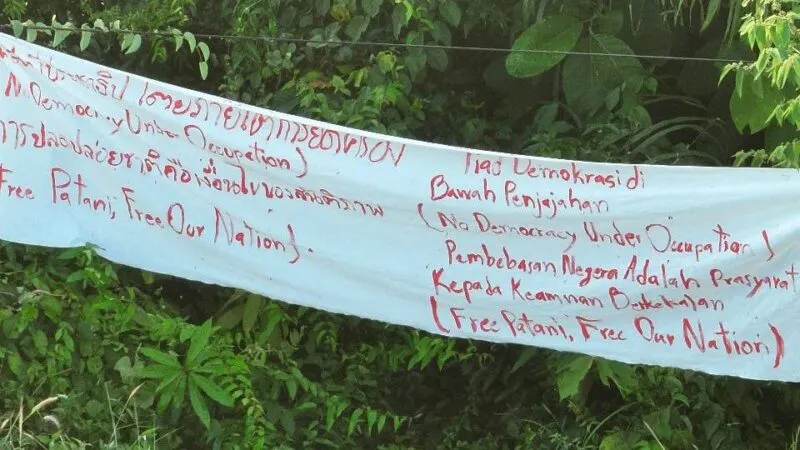 ประชาธิป ไตยภายใต้การยึดครอง
Democracy Under Occupation)
การปลดปล่อยชาติคือเงื่อนไขของสันติภาพ
Free Patani, Free Our Nation).
Tiad Demokrasi di
Bawah Penjajahan
(No Democracy Under Occupation)
Pembebasan Negera Adalah Prasyarat
Kepada Keamnan Berkekalan
(Free Patani, Free Our Nation)